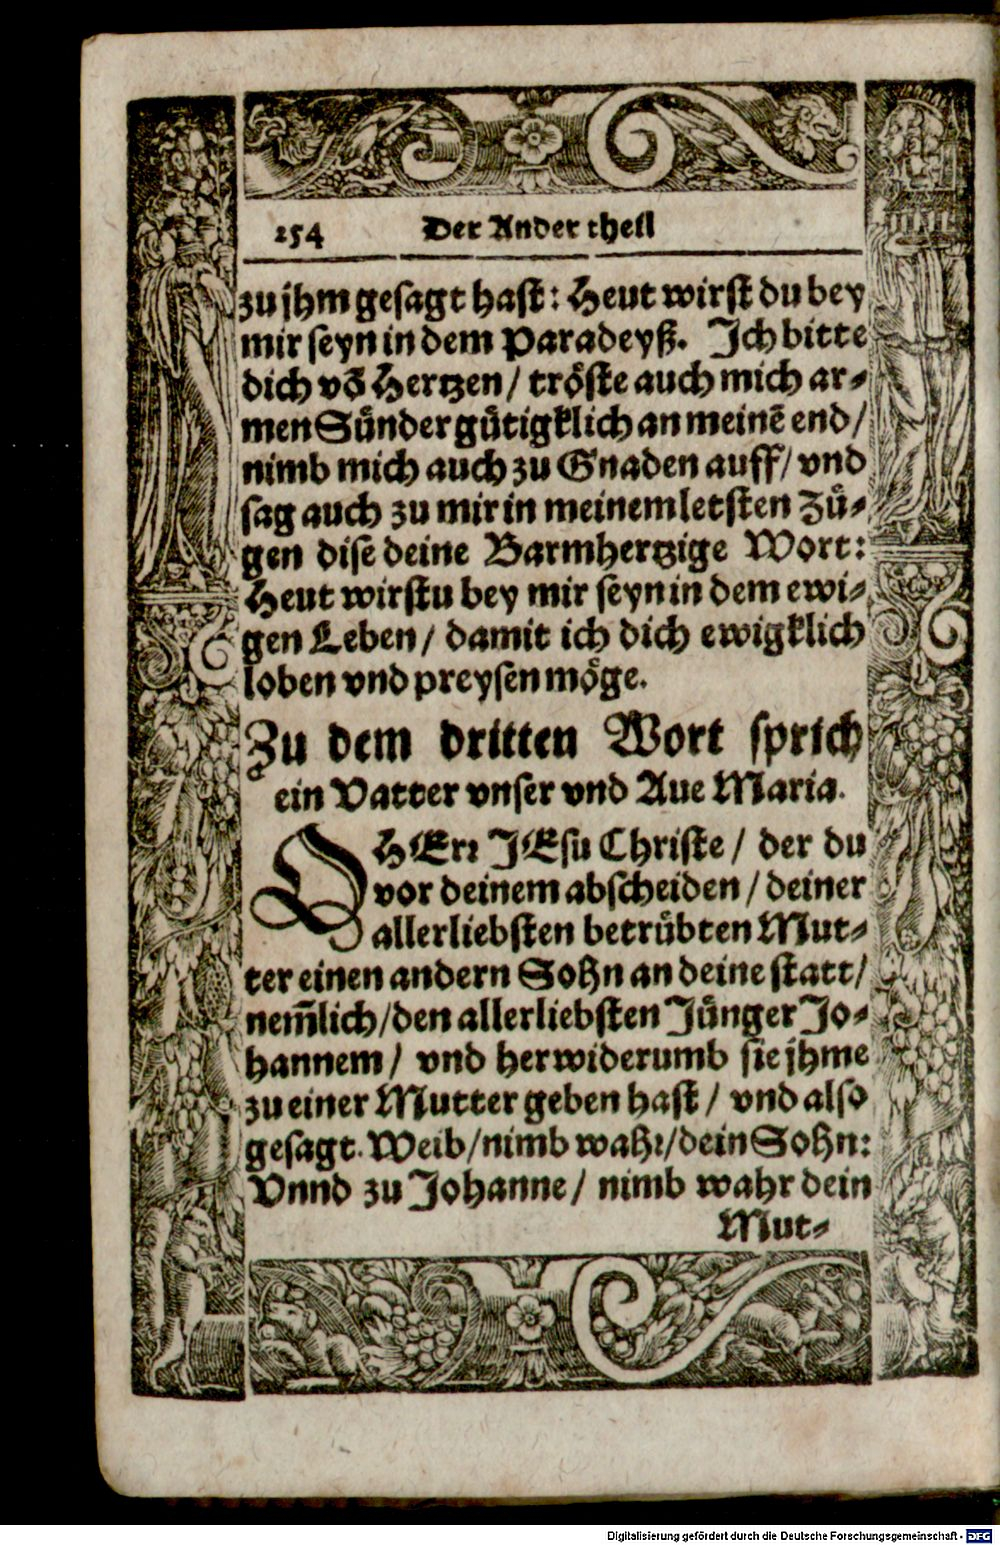 254 Der Ander theil
zu jhm gesagt hast: Heut wirst du bey
mir seyn in dem Paradeyß. Jch bitte
dich võ Hertzen / tröste auch mich ar-
men Sünder gütigklich an meinē end /
nimb mich auch zu Gnaden auff / vnd
sag auch zu mir in meinem letsten Zü-
gen dise deine Barmhertzige Wort:
Heut wirstu bey mir seyn in dem ewi-
gen Leben / damit ich dich ewigklich
loben vnd preysen möge.
Zu dem dritten Wort sprich
ein Vatter vnser vnd Aue Maria.
O HErr JEsu Christe / der du
vor deinem abscheiden / deiner
allerliebsten betrübten Mut-
ter einen andern Sohn an deine statt /
nem̃lich / den allerliebsten Jünger Jo-
hannem / vnd herwiderumb sie jhme
zu einer Mutter geben hast / vnd also
gesagt. Weib / nimb wahr / dein Sohn:
Vnnd zu Johanne / nimb wahr dein
Mut-
Digitalisierung gefördert durch die Deutsche Forschungsgemeinschaft - DFG